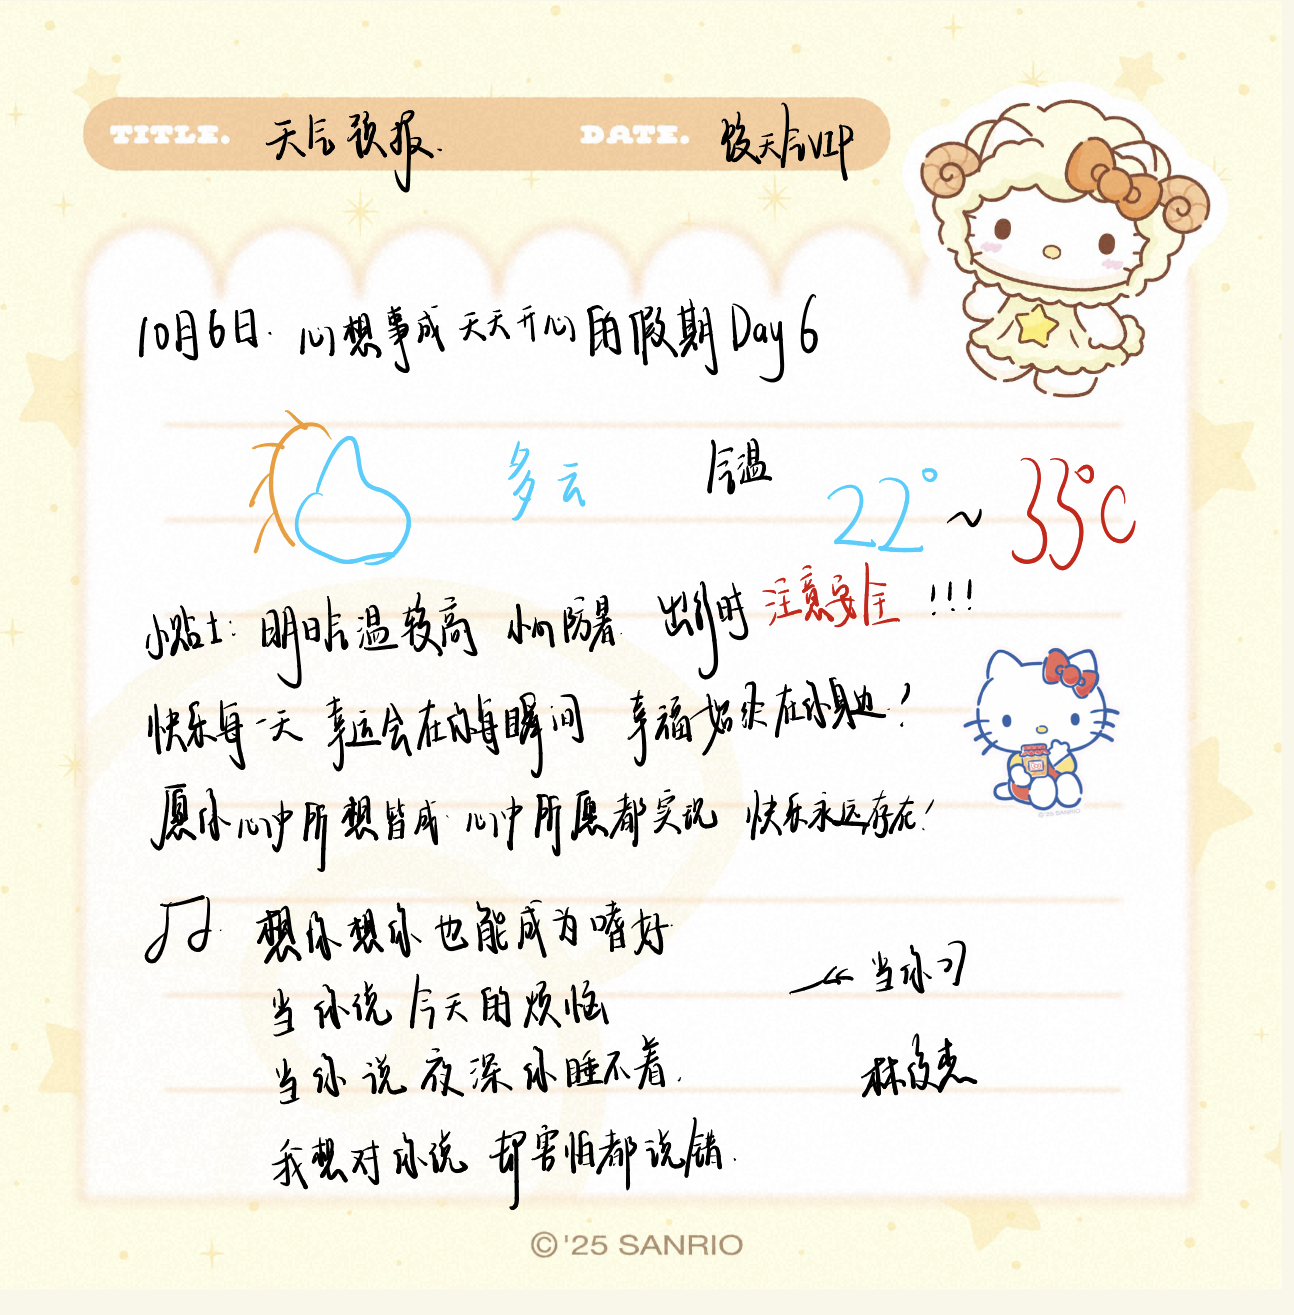 TITLE. 天气预报. DATE. 悦天气VIP
10月6日. 心想事成 天天开心的假期 Day 6
多云 气温 22°~33°C
小贴士: 明日气温较高 小心防暑. 出行时 注意安全 !!!
快乐每一天 幸运会在你每瞬间 幸福始终在你身边!
愿你心中所想皆成 心中所愿都实现 快乐永远存在!
想你想你也能成为嗜好
当你说 今天的烦恼
《当你》
当你说 夜深你睡不着.
林俊杰
我想对你说 却害怕都说错.
©'25 SANRIO